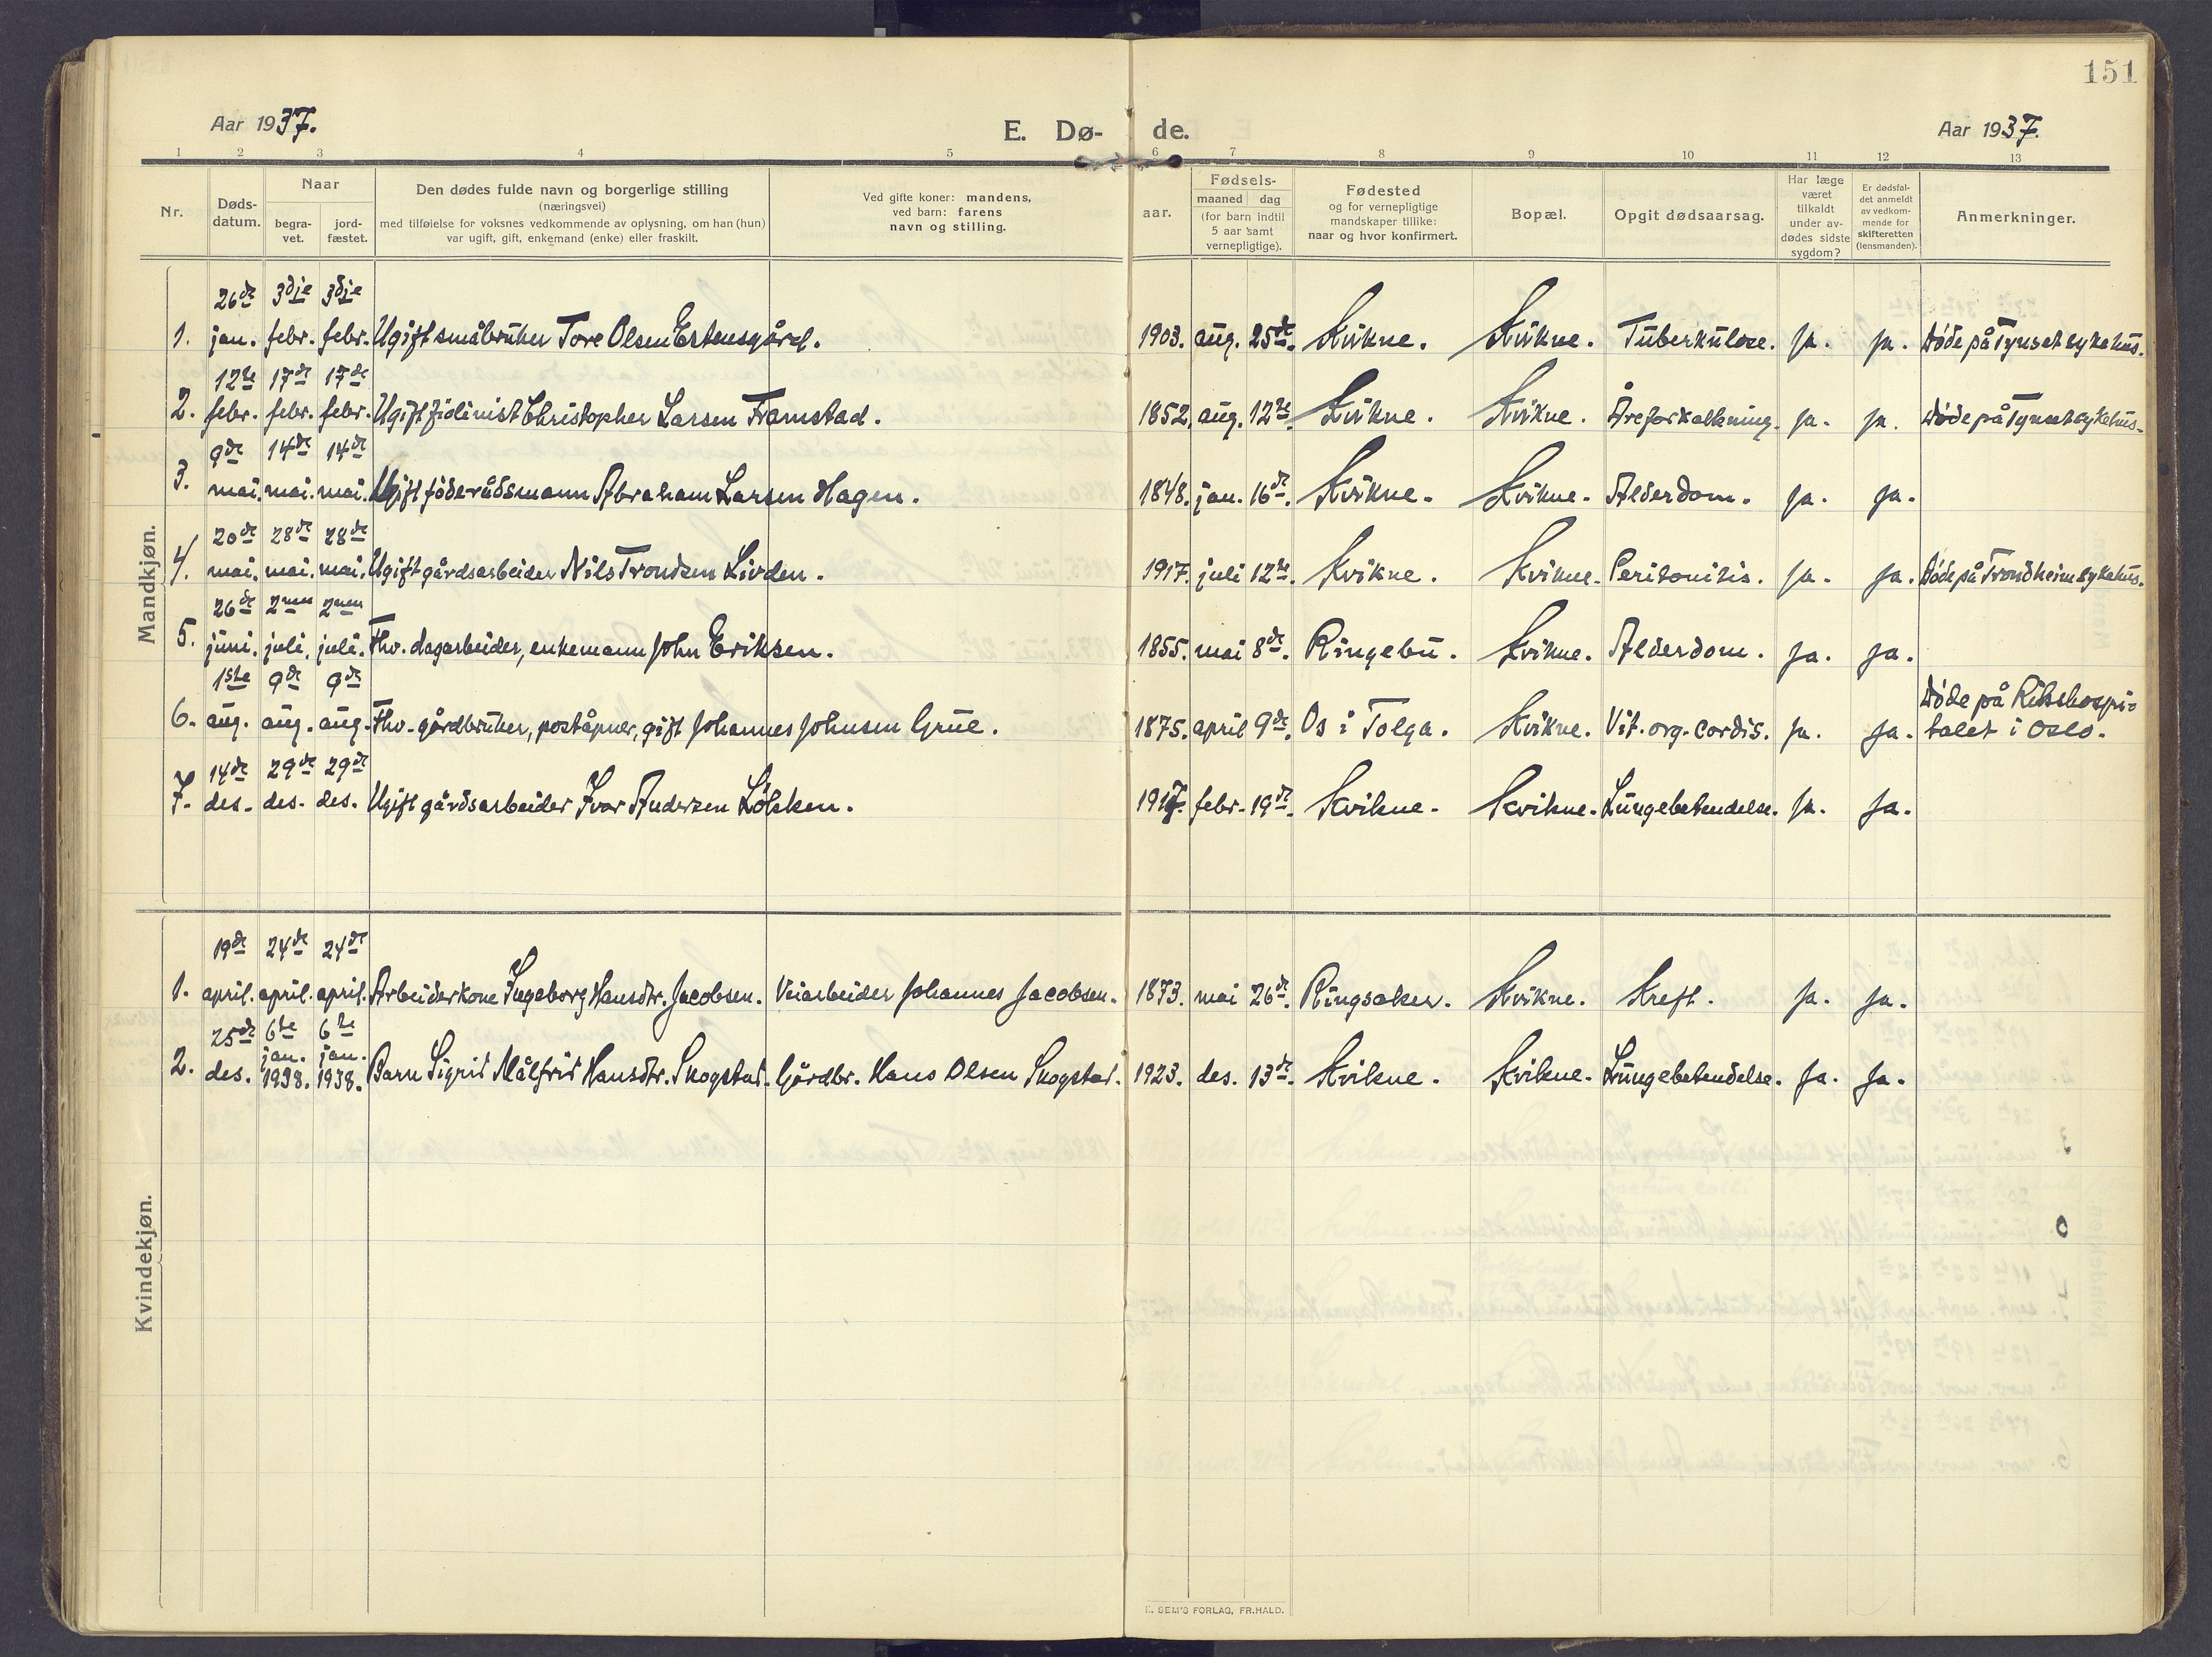 151
Aar 1937.
E. Dø- de.
Aar 1937.
1 2 3 4 5 6 7 8 9 10 11 12 13
Nr.
Døds-
datum.
Naar
begra-
vet.
jord-
fæstet.
Den dødes fulde navn og borgerlige stilling
(næringsvei)
med tilføielse for voksnes vedkommende av oplysning, om han (hun)
var ugift, gift, enkemand (enke) eller fraskilt.
Ved gifte koner: mandens,
ved barn: farens
navn og stilling.
Fødsels-
aar.
maaned dag
(for barn indtil
5 aar samt
vernepligtige).
Fødested
og for vernepligtige
mandskaper tillike:
naar og hvor konfirmert.
Bopæl.
Opgit dødsaarsag.
Har læge
været
tilkaldt
under av-
dødes sidste
sygdom?
Er dødsfal-
det anmeldt
av vedkom-
mende for
skifteretten
(lensmanden).
Anmerkninger.
Mandkjøn.
26de 3dje 3dje
1. jan. febr. febr. Ugift småbruker Tore Olsen Estensgård. 1903. aug. 25de. Kvikne. Kvikne. Tuberkulose. Ja. Ja. Døde på Tynset sykehus.
12te 17de 17de
2. febr. febr. febr. Ugift Christopher Larsen Framstad. 1852. aug. 12te. Kvikne. Kvikne. Åreforkalkning. Ja. Ja. Døde på Tynset sykehus.
9de 14de 14de
3. mai. mai. mai. Ugift føderådsmann Abraham Larsen Hagen. 1848. jan. 16de. Kvikne. Kvikne. Alderdom. Ja. Ja.
20de 28de 28de
4. mai. mai. mai. Ugift gårdsarbeider Nils Trondsen Livden. 1917. juli 12te. Kvikne. Kvikne. Peritonitis. Ja. Ja. Døde på Trondheim sykehus.
26de 2nen 2nen
5. juni. juli. juli. Fhv. dagarbeider, enkemann John Eriksen. 1855. mai 8de. Ringebu. Kvikne. Alderdom. Ja. Ja.
1ste 9de 9de
6. aug. aug. aug. Fhv. gårdbruker, poståpner, gift Johannes Johnsen Grue. 1875. april 9de. Os i Tolga. Kvikne. Vit. org. cordis. Ja. Ja. Døde på Rikshospi-
talet i Oslo.
14de 29de 29de
7. des. des. des. Ugift gårdsarbeider Ivar Andersen Løkken. 1917. febr. 19de. Kvikne. Kvikne. Lungebetendelse. Ja. Ja.
Kvindekjøn.
19de 24de 24de
1. april. april. april. Arbeiderkone Ingeborg Hansdtr. Jacobsen. Veiarbeider Johannes Jacobsen. 1873. mai 26de. Ringsaker. Kvikne. Kreft. Ja. Ja.
25de 6te 6te
jan. jan.
2. des. 1938. 1938. Barn Sigrid Målfrid Hansdtr. Skogstad. Gårdbr. Hans Olsen Skogstad. 1923. des. 13de. Kvikne. Kvikne. Lungebetendelse. Ja. Ja.
E. SEM'S FORLAG, FR.HALD.